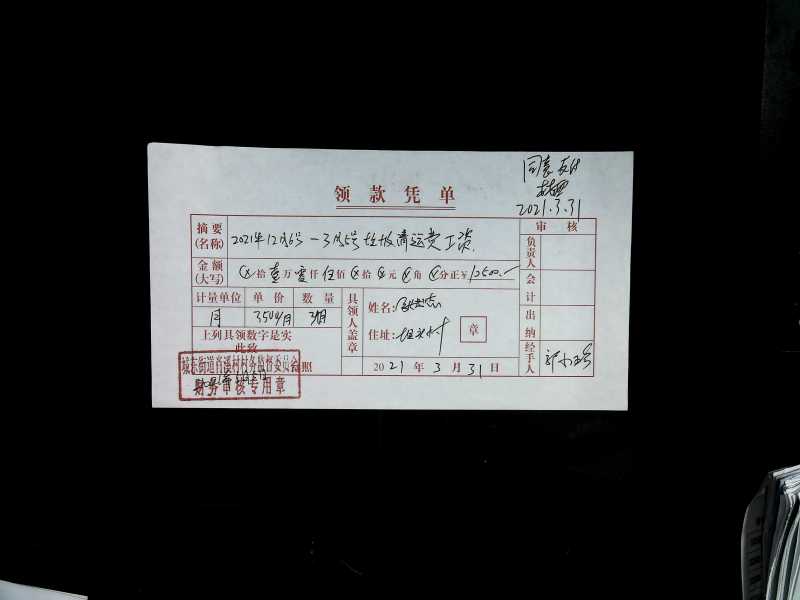 同意支付
2021.3.31
领款凭单
摘要(名称) 2021年12月6号—3月5号垃圾清运费工资 审核
金额(大写) ⊗拾壹万零仟伍佰⊗拾⊗元⊗角⊗分正¥ 12500.- 负责人
计量单位 单价 数量 具领人盖章 姓名: 会计
月 3500/月 3个月 住址: 村 章 出纳
上列具领数字是实
此致
照 2021年3月31日 经手人 郭
城东街道肖溪村村务监督委员会
财务审核专用章